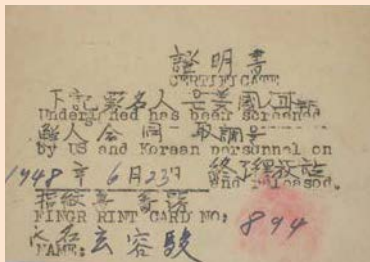 證明書
CERTIFICATE
下記署名人은美國人과朝
Undersigned has been screened
鮮人合同 取調로
by US and Korean personnel on
1948年 6月23日 終了釋放함
and released.
指紋票 番號
FINGR RINT CARD NO: 894
氏名 玄容駿
NAME: